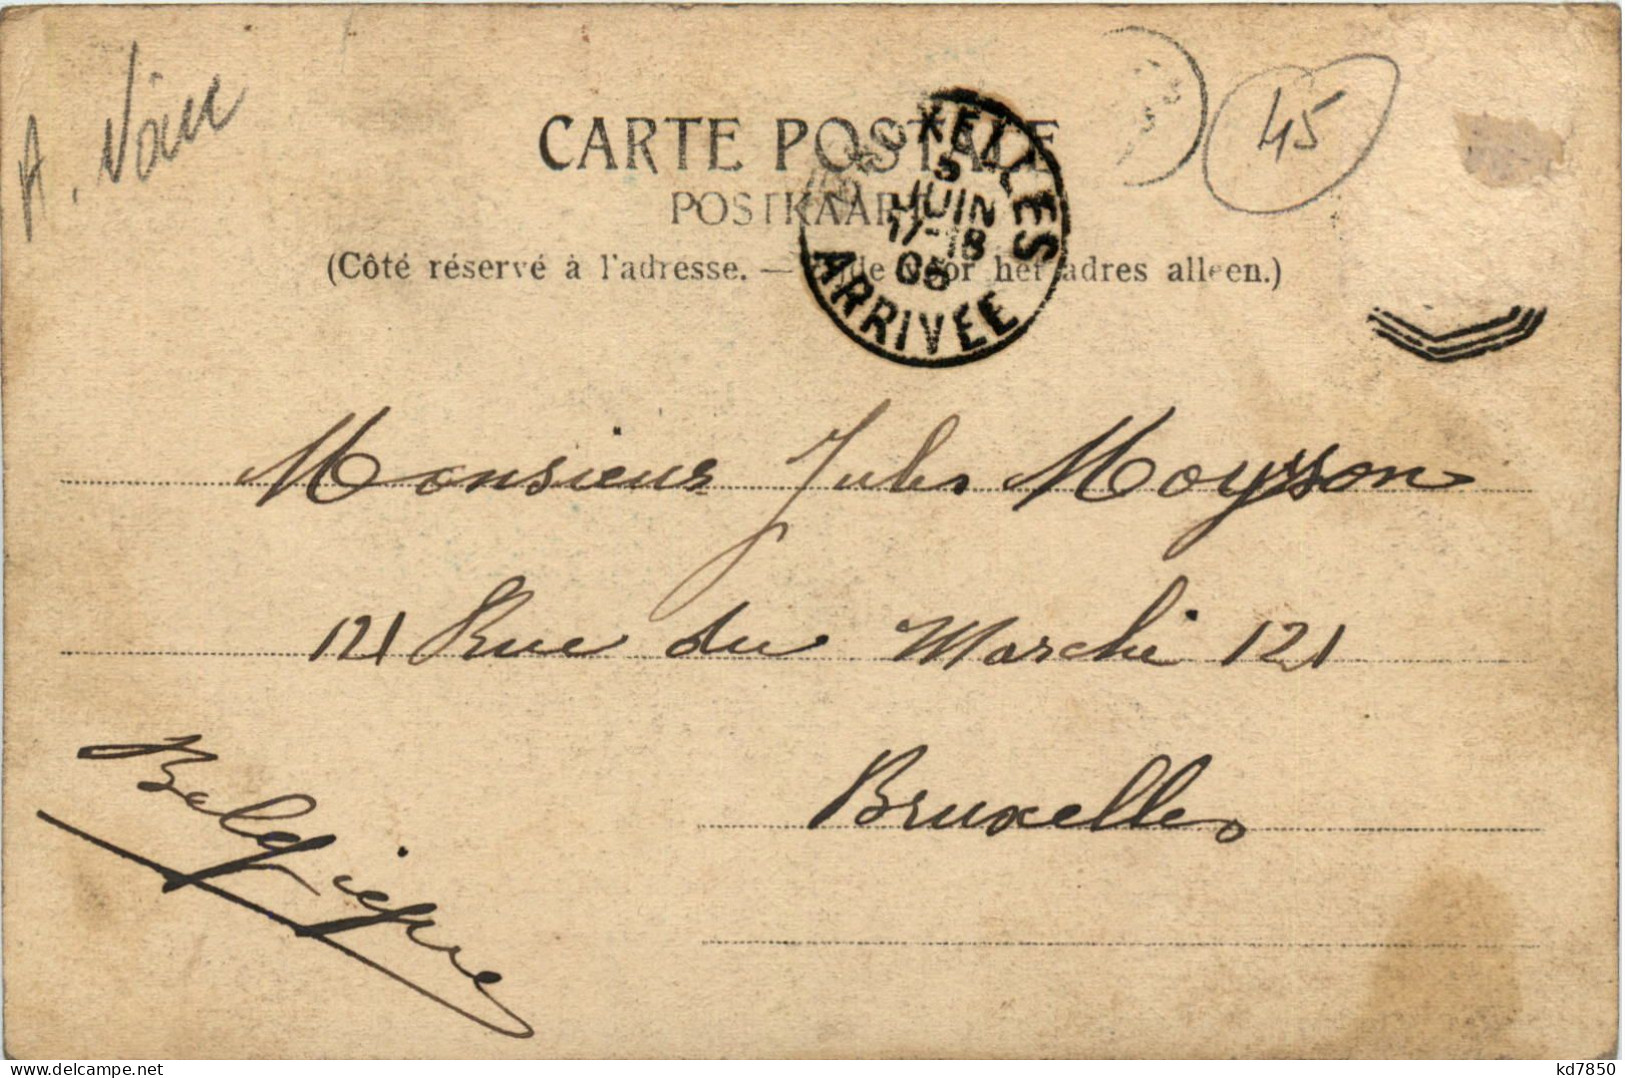 A. Voir
45
CARTE POSTALE
POSTKAART
(Côté réservé à l'adresse. — Zijde voor het adres alleen.)
BRUXELLES
5
JUIN
17-18
05
ARRIVÉE
Monsieur Jules Moysson
121 Rue du Marché 121
Bruxelles
Belgique
kd7850